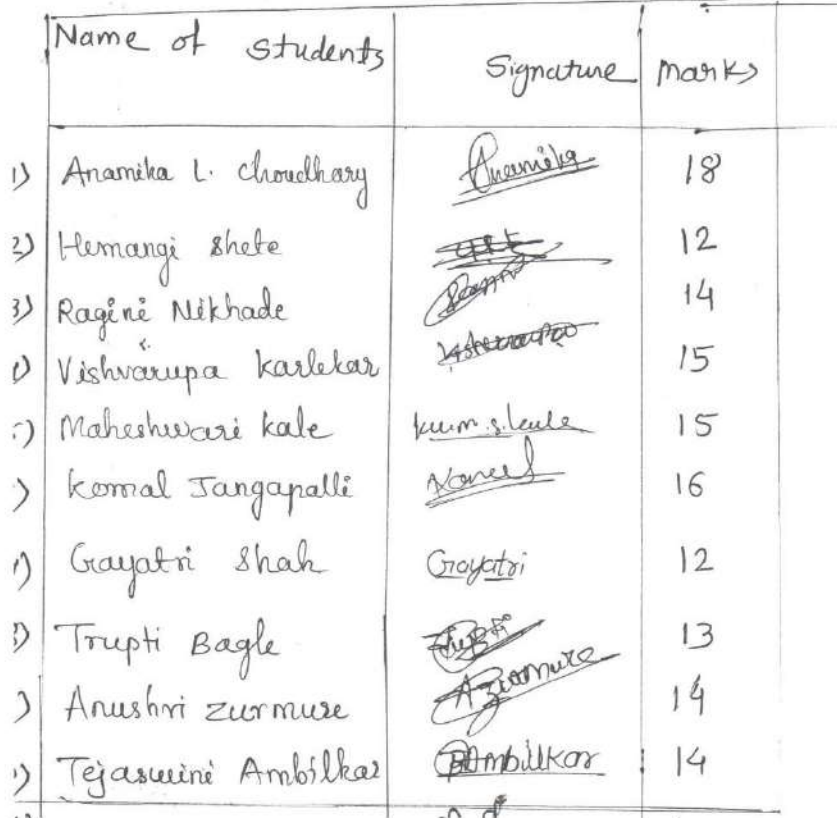 Name of Students Signature Marks
1) Anamika L. Choudhary Anamika 18
2) Hemangi Shete 12
3) Ragini Nikhade 14
) Vishvarupa Karlekar 15
) Maheshwari Kale kum.s.kale 15
) Komal Jangapalli Komal 16
) Gayatri Shah Gayatri 12
) Trupti Bagle 13
) Anushri Zurmure AZurmure 14
) Tejaswini Ambilkar Ambilkar 14